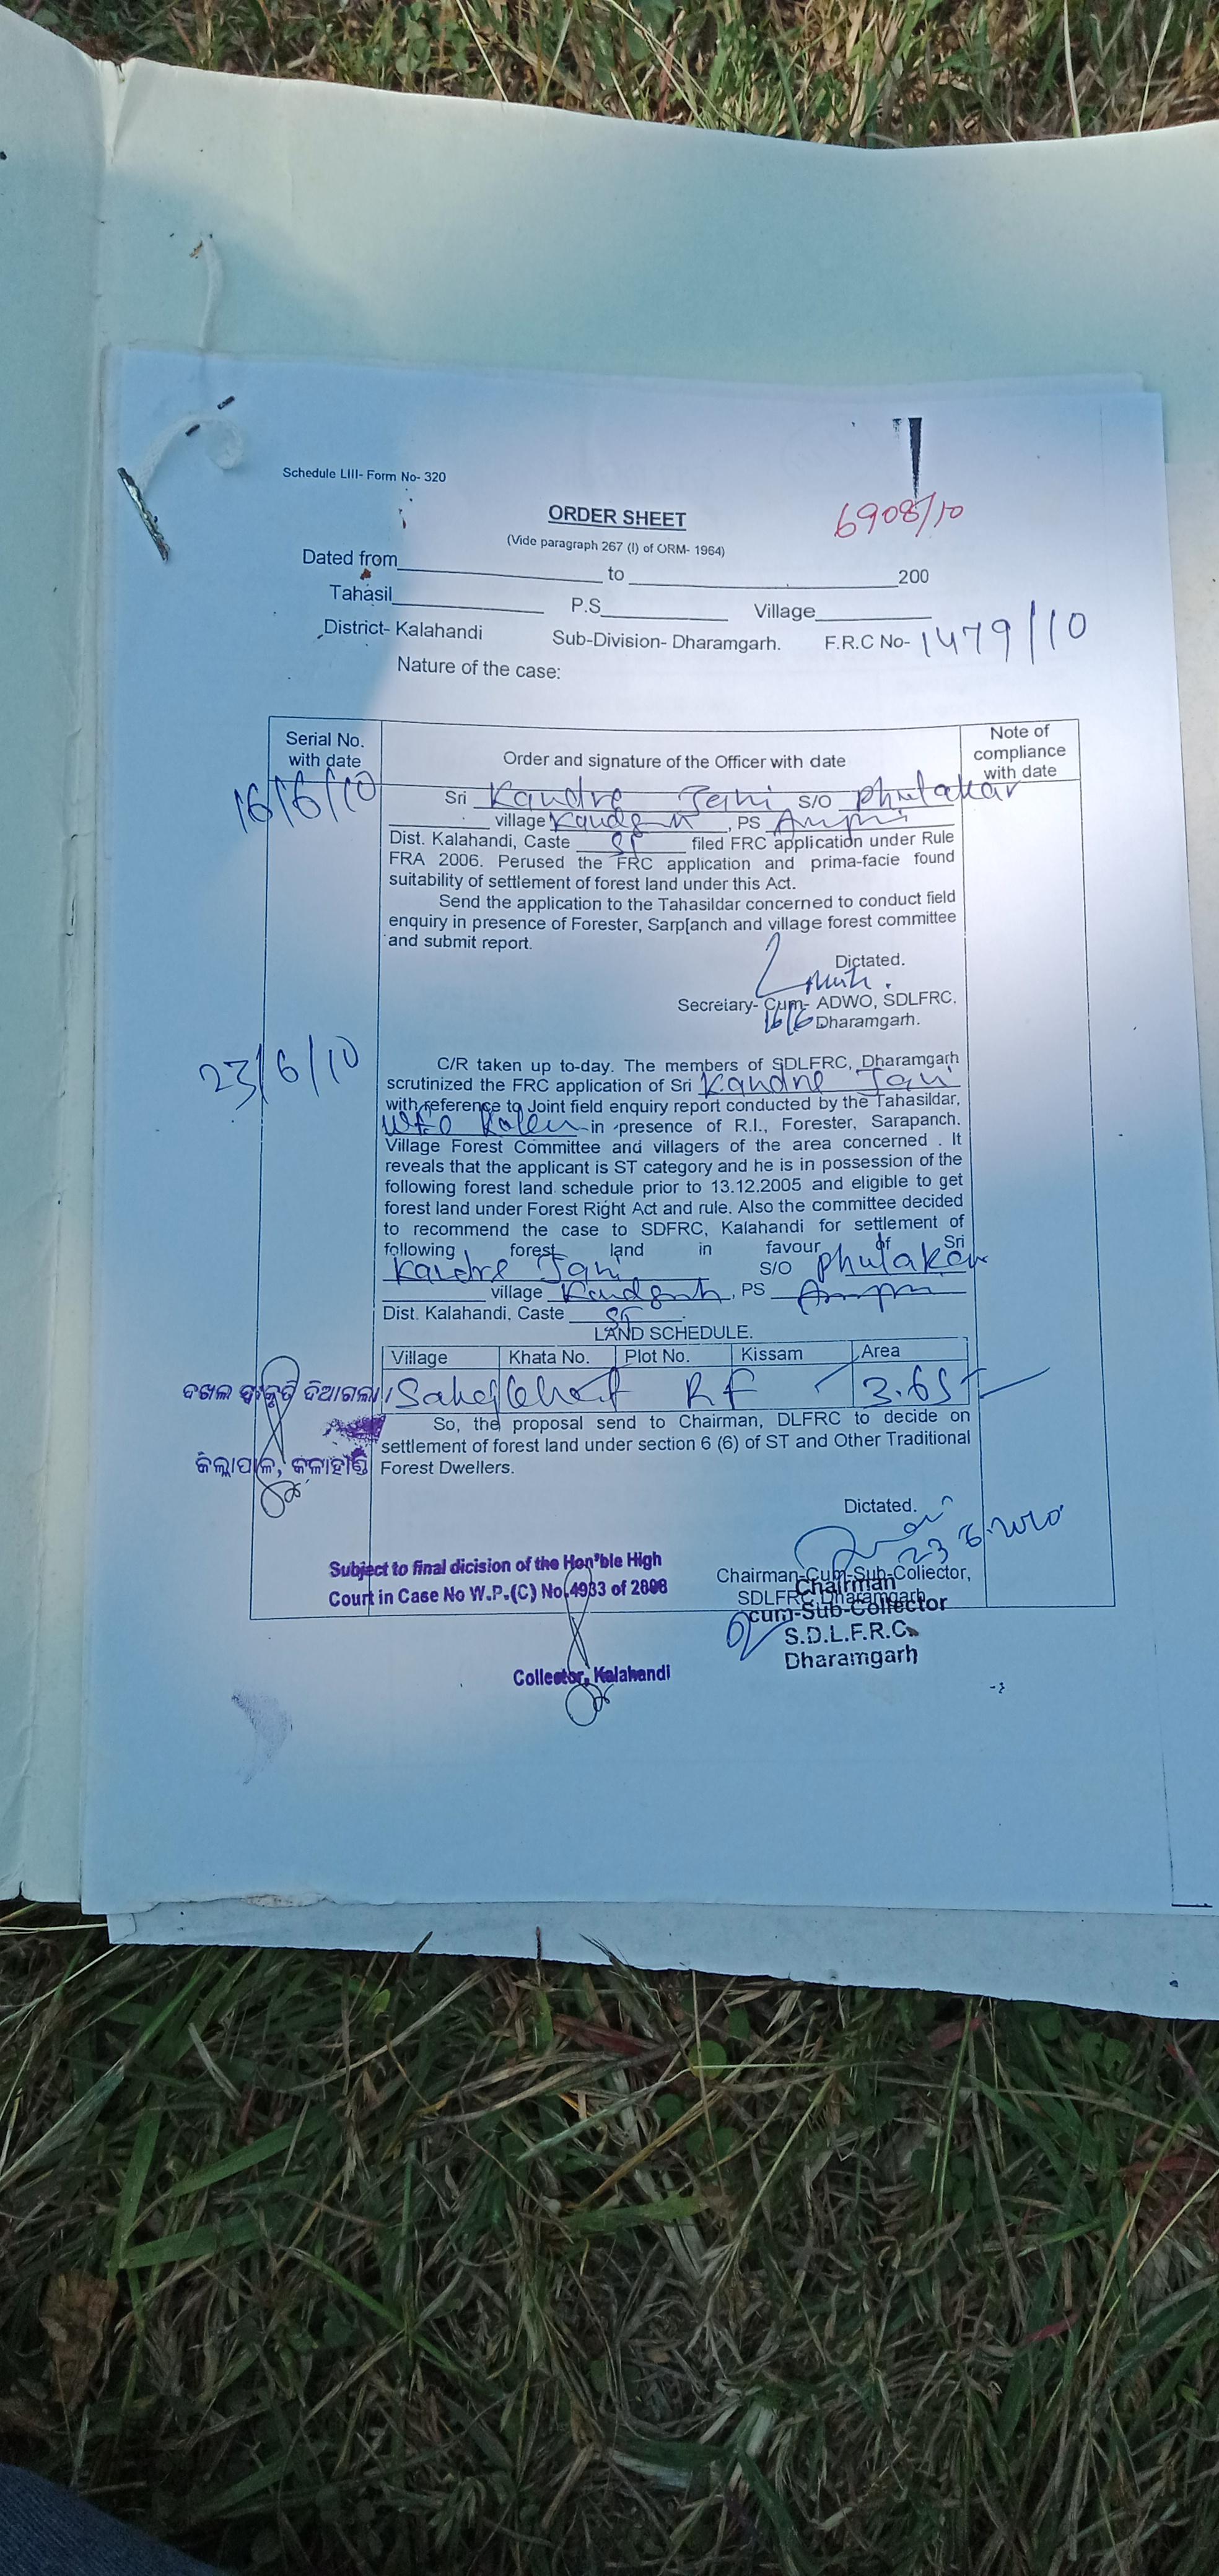 Schedule LIII- Form No- 320
6908/10
ORDER SHEET
(Vide paragraph 267 (I) of ORM- 1964)
Dated from to 200
Tahasil P.S Village
District- Kalahandi Sub-Division- Dharamgarh. F.R.C No- 1479/10
Nature of the case:
Serial No. with date
Order and signature of the Officer with date
Note of compliance with date
16/6/10
Sri Kandre Jani S/O Phulakar
village , PS
Dist. Kalahandi, Caste ST filed FRC application under Rule
FRA 2006. Perused the FRC application and prima-facie found
suitability of settlement of forest land under this Act.
Send the application to the Tahasildar concerned to conduct field
enquiry in presence of Forester, Sarp[anch and village forest committee
and submit report.
Dictated.
Secretary- Cum- ADWO, SDLFRC,
16/6 Dharamgarh.
23/6/10
C/R taken up to-day. The members of SDLFRC, Dharamgarh
scrutinized the FRC application of Sri Kandre Jani
with reference to Joint field enquiry report conducted by the Tahasildar,
in presence of R.I., Forester, Sarapanch.
Village Forest Committee and villagers of the area concerned . It
reveals that the applicant is ST category and he is in possession of the
following forest land schedule prior to 13.12.2005 and eligible to get
forest land under Forest Right Act and rule. Also the committee decided
to recommend the case to SDFRC, Kalahandi for settlement of
following forest land in favour of Sri
Kandre Jani S/O Phulakar
village , PS
Dist. Kalahandi, Caste ST.
LAND SCHEDULE.
Village Khata No. Plot No. Kissam Area
RF 3.65
ଦଖଲ ସ୍ୱୀକୃତି ଦିଆଗଲା
So, the proposal send to Chairman, DLFRC to decide on
settlement of forest land under section 6 (6) of ST and Other Traditional
Forest Dwellers.
ଜିଲ୍ଲାପାଳ, କଳାହାଣ୍ଡି
Dictated.
23.6.2010
Subject to final dicision of the Hon'ble High
Court in Case No W.P.(C) No.4933 of 2008
Collector, Kalahandi
Chairman-Cum-Sub-Collector,
SDLFRC, Dharamgarh
Chairman
cum-Sub-Collector
S.D.L.F.R.C.
Dharamgarh